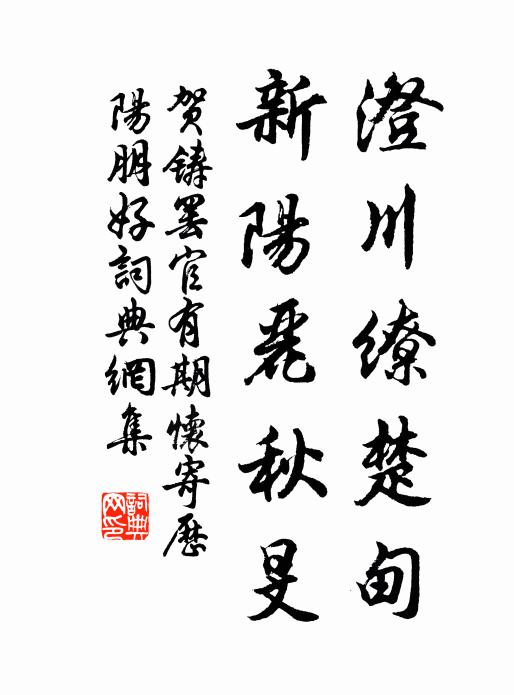 澄川繚楚甸
新陽麗秋旻
賀鑄罷官有期懷寄歷
陽朋好詞典網集
詞典
网印